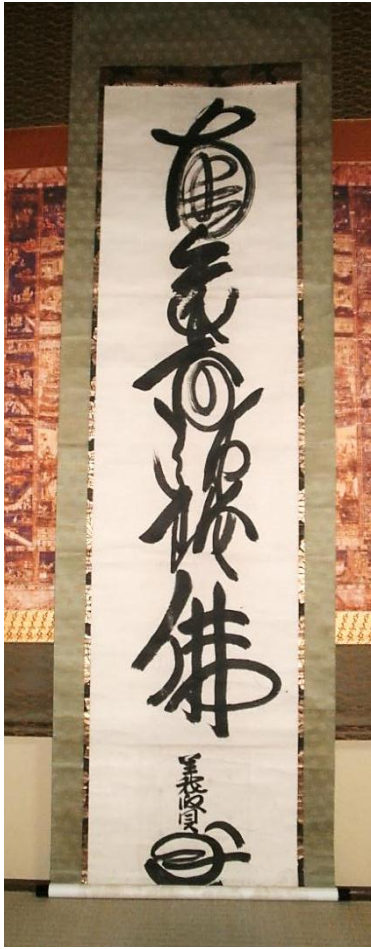 南無阿弥陀佛
義賢